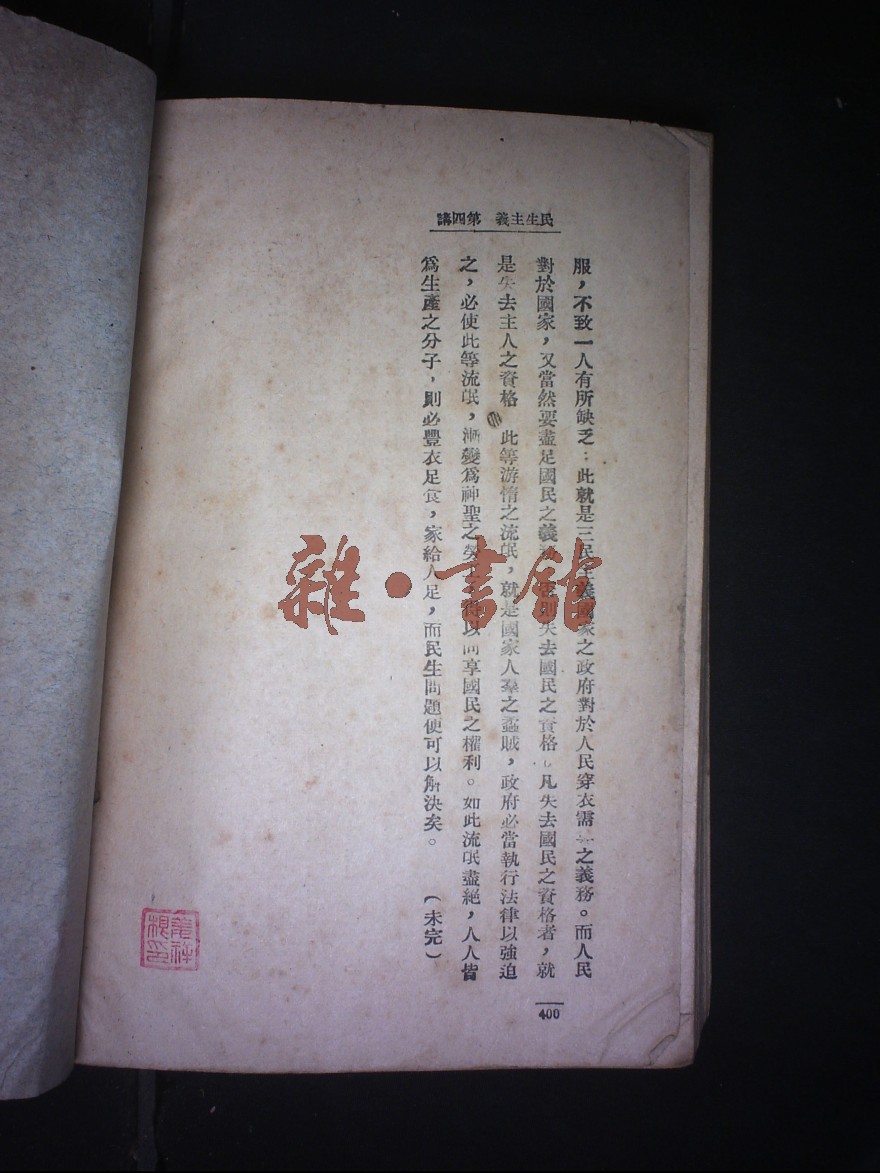 民生主義　第四講
服，不致一人有所缺乏；此就是三民主義國家之政府對於人民穿衣需　之義務。而人民
對於國家，又當然要盡足國民之義務，否則失去國民之資格。凡失去國民之資格者，就
是失去主人之資格　此等游惰之流氓，就是國家人羣之蟊賊，政府必當執行法律以強迫
之，必使此等流氓，漸變爲神聖之勞工，得以同享國民之權利。如此流氓盡絕，人人皆
爲生產之分子，則必豐衣足食，家給人足，而民生問題便可以解決矣。　（未完）
400
雜·書館